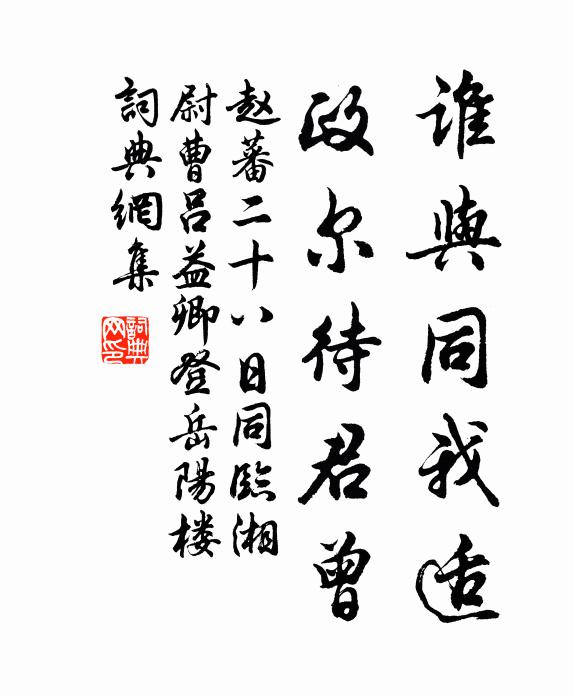 谁與同我适
政尔待君曾
赵蕃二十八日同臨湘
尉曹吕益卿登岳陽楼
詞典網集
詞典
网印